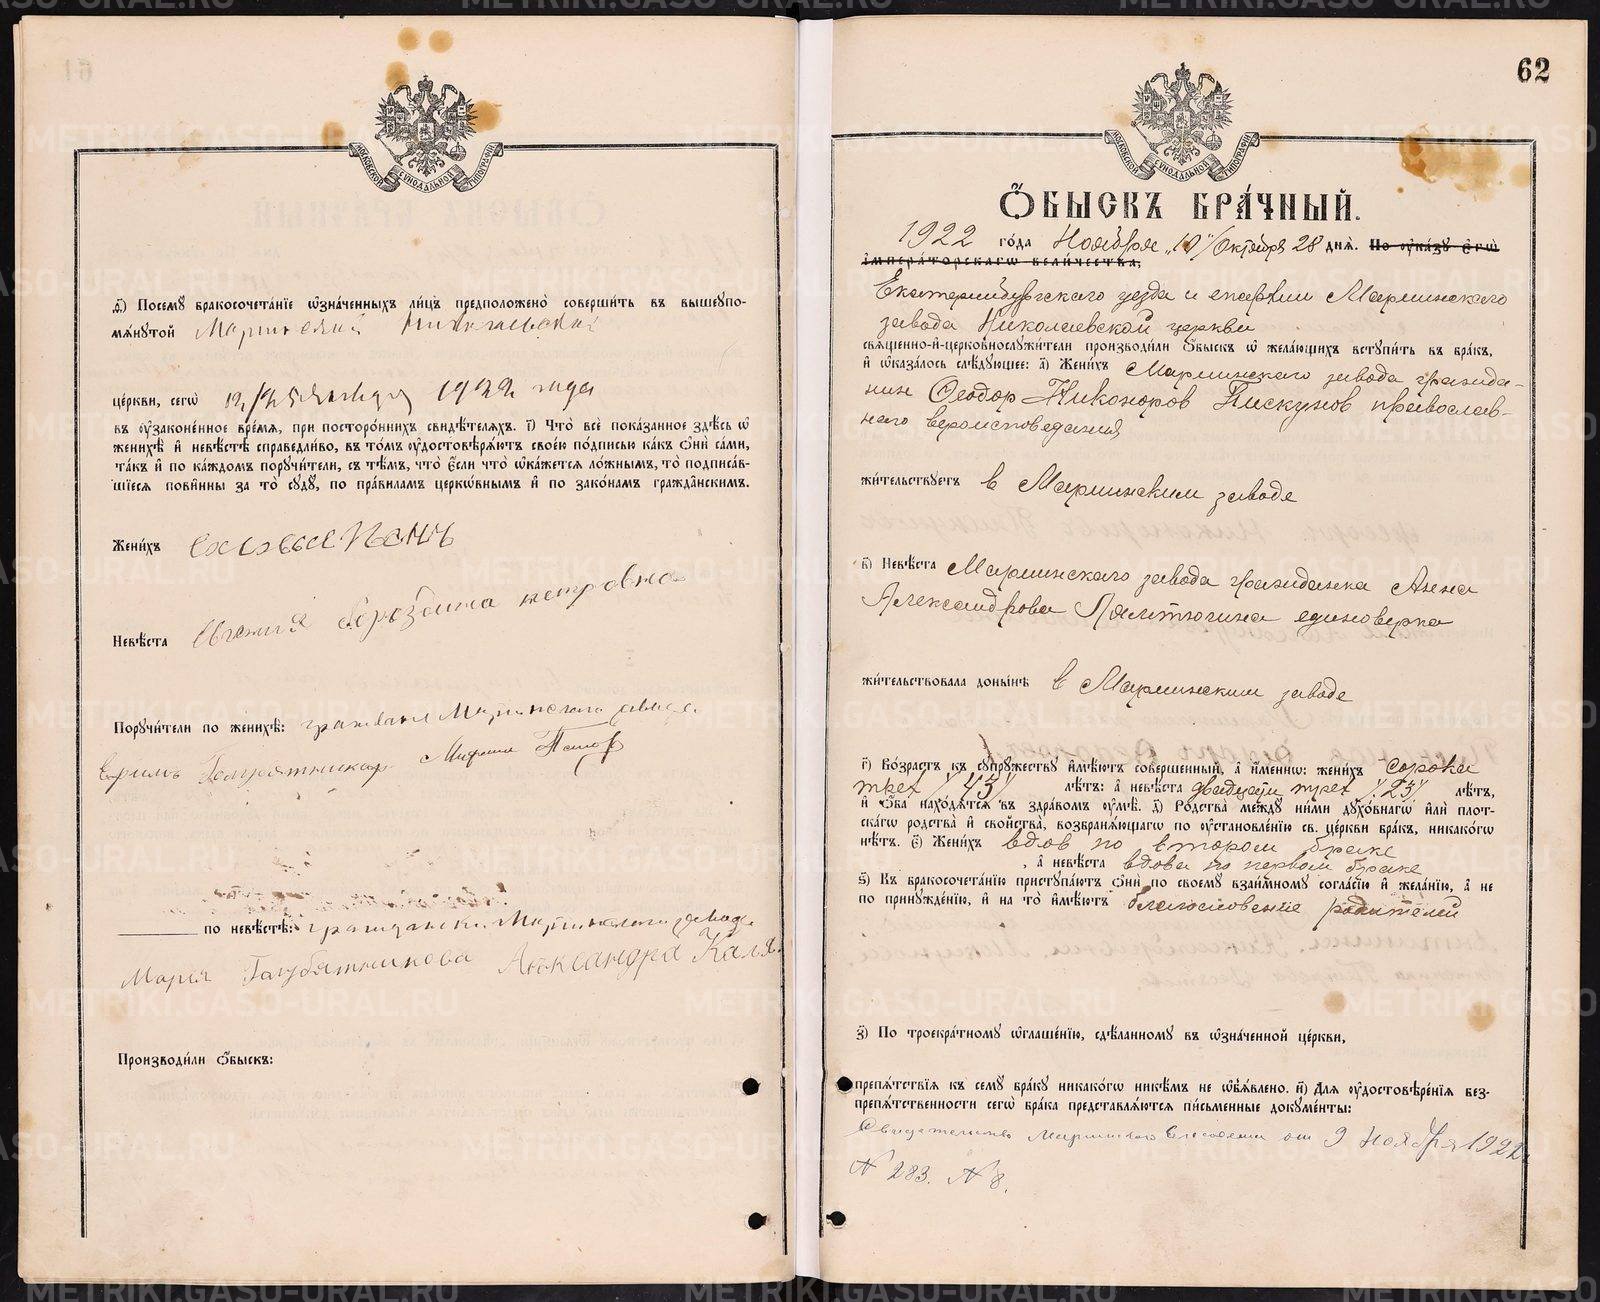 д҃) Посемꙋ бракосочета́нїе ѡ҆зна́ченныхъ ли́цъ предположено̀ соверши́ть въ вышеупо-
мѧ́нꙋтой Мариинской Никольской
це́ркви, сегѡ̀ 12/25 1922 года
въ ᲂу҆зако́ненное вре́мѧ, при посторо́ннихъ свидѣ́телѧхъ. і҃) Что̀ всѐ пока́занное здѣ́сь ѡ҆
женихѣ̀ и҆ невѣ́стѣ справедли́во, въ то́мъ ᲂу҆достовѣрѧ́ютъ свое́ю по́дписью ка́къ ѻ҆нѝ са́ми,
та́къ и҆ по ка́ждомъ порꙋчи́тели, съ тѣ́мъ, что̀ є҆́сли что̀ ѡ҆ка́жетсѧ ло́жнымъ, то̀ подписа́в-
шїесѧ пови́нны за то̀ сꙋдꙋ̀, по пра́виламъ церко́внымъ и҆ по зако́намъ гражда́нскимъ.
Жени́хъ
Невѣ́ста Евгения Бороздина петровна
Порꙋчи́тели по женихѣ̀: граждане Мариинского завода
по невѣ́стѣ: гражданки Мариинского завода
Мария Голубятникова Александра
Производи́ли ѻ҆́быскъ:
62
Ѻ҆́БЫСКЪ БРА́ЧНЫЙ.
1922 го́да Ноября „10“/Октября 28 днѧ̀. По ᲂу҆ка́зꙋ Є҆гѡ̀
І҆мпера́торскагѡ вели́чества,
Екатеринбургского уезда и епархии Мариинского
завода Николаевской церкви
свѧще́нно-и҆-церковнослꙋжи́тели производи́ли ѻ҆́быскъ ѡ҆ жела́ющихъ встꙋпи́ть въ бра́къ,
и҆ ѡ҆каза́лось слѣ́дꙋющее: а҃) Жени́хъ Мариинского завода гражда-
нин Феодор Никоноров Пискунов православ-
ного вероисповедания
жи́тельствꙋетъ в Мариинским заводе
в҃) Невѣ́ста Мариинского завода гражданка Анна
Александрова единоверка
жи́тельствовала доны́нѣ в Мариинским заводе
г҃) Во́зрастъ къ сꙋпрꙋ́жествꙋ и҆мѣ́ютъ соверше́нный, а҆ и҆́менно: жени́хъ сорока
трех /43/ лѣ́тъ: а҆ невѣ́ста двадцати трех /23/ лѣ́тъ,
и҆ ѻ҆́ба нахо́дѧтсѧ въ здра́вомъ ᲂу҆мѣ̀. д҃) Родства̀ междꙋ̀ ни́ми дꙋхо́внагѡ и҆лѝ плот-
ска́гѡ родства̀ и҆ сво́йства̀, возбранѧ́ющагѡ по ᲂу҆становле́нїю св. це́ркви бра́къ, никако́гѡ
нѣ́тъ. є҃) Жени́хъ вдов по втором браке
, а҆ невѣ́ста вдова по первом браке
ѕ҃) Къ бракосочета́нїю пристꙋпа́ютъ ѻ҆нѝ по своемꙋ̀ взаи́мномꙋ согла́сїю и҆ жела́нїю, а҆ не
по принꙋжде́нїю, и҆ на то̀ и҆мѣ́ютъ благословение родителей
з҃) По троекра́тномꙋ ѡ҆глаше́нїю, сдѣ́ланномꙋ въ ѡ҆зна́ченной це́ркви,
препѧ́тствїѧ къ семꙋ̀ бра́кꙋ никако́гѡ никѣ́мъ не ѡ҆б̾ѧ́влено. и҃) Длѧ ᲂу҆достовѣре́нїѧ без-
препѧ́тственности сегѡ̀ бра́ка представлѧ́ютсѧ пи́сьменные докꙋме́нты:
Свидетельство Мариинского от 9 Ноября 1922
№ 283. № 8.